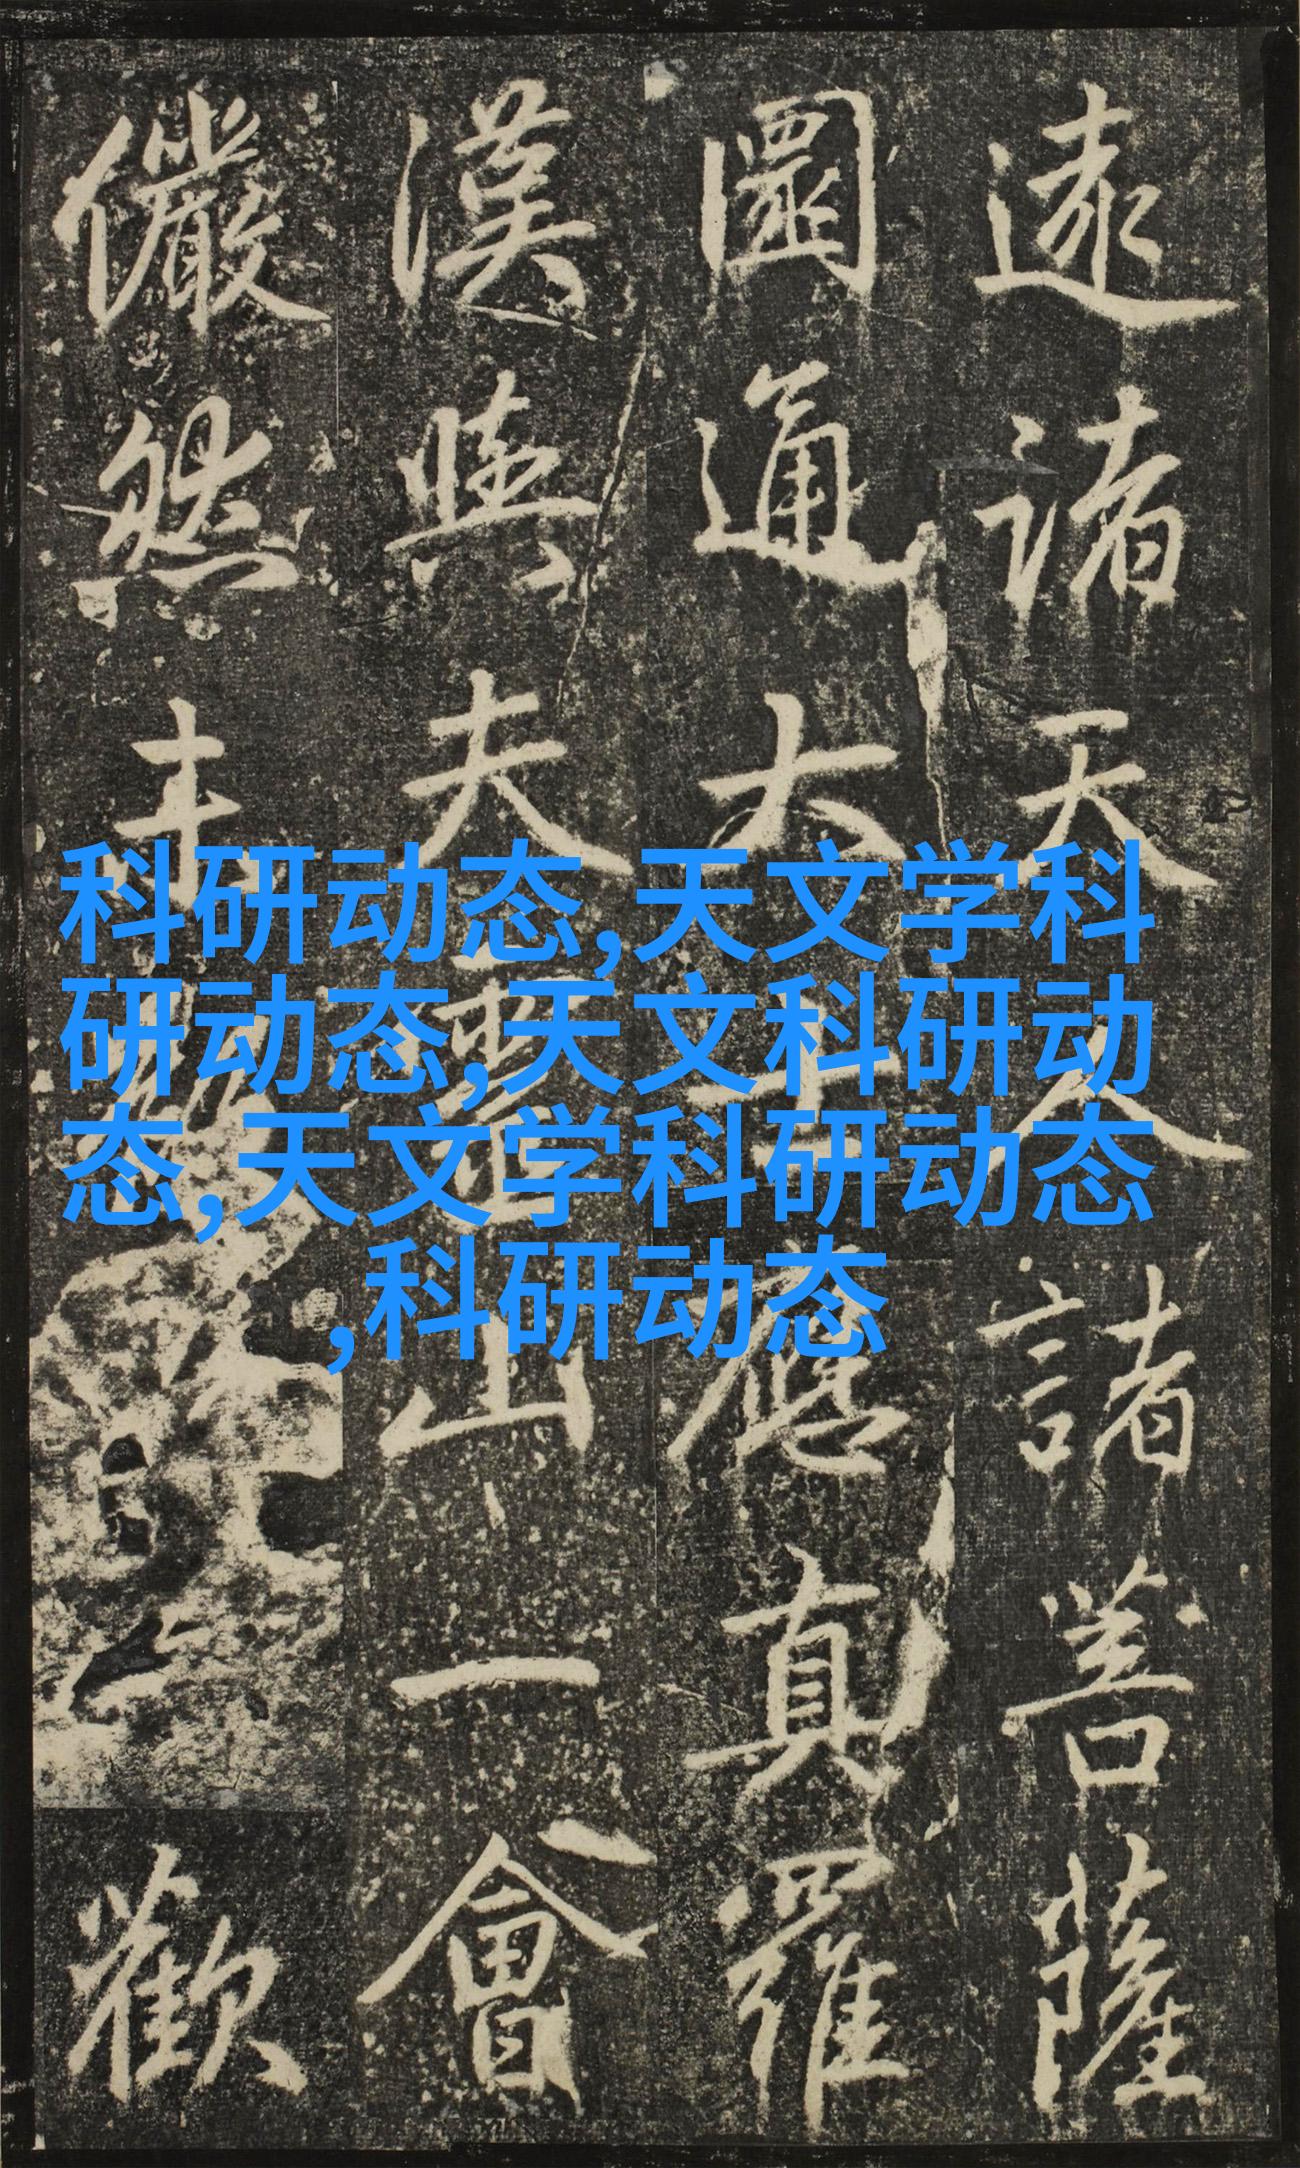 遠諸天人諸菩薩
圓通大士應真羅
漢與夫靈山一會
儼然未歡
科研动态,天文学科
研动态,天文科研动
态,天文学科研动态
,科研动态